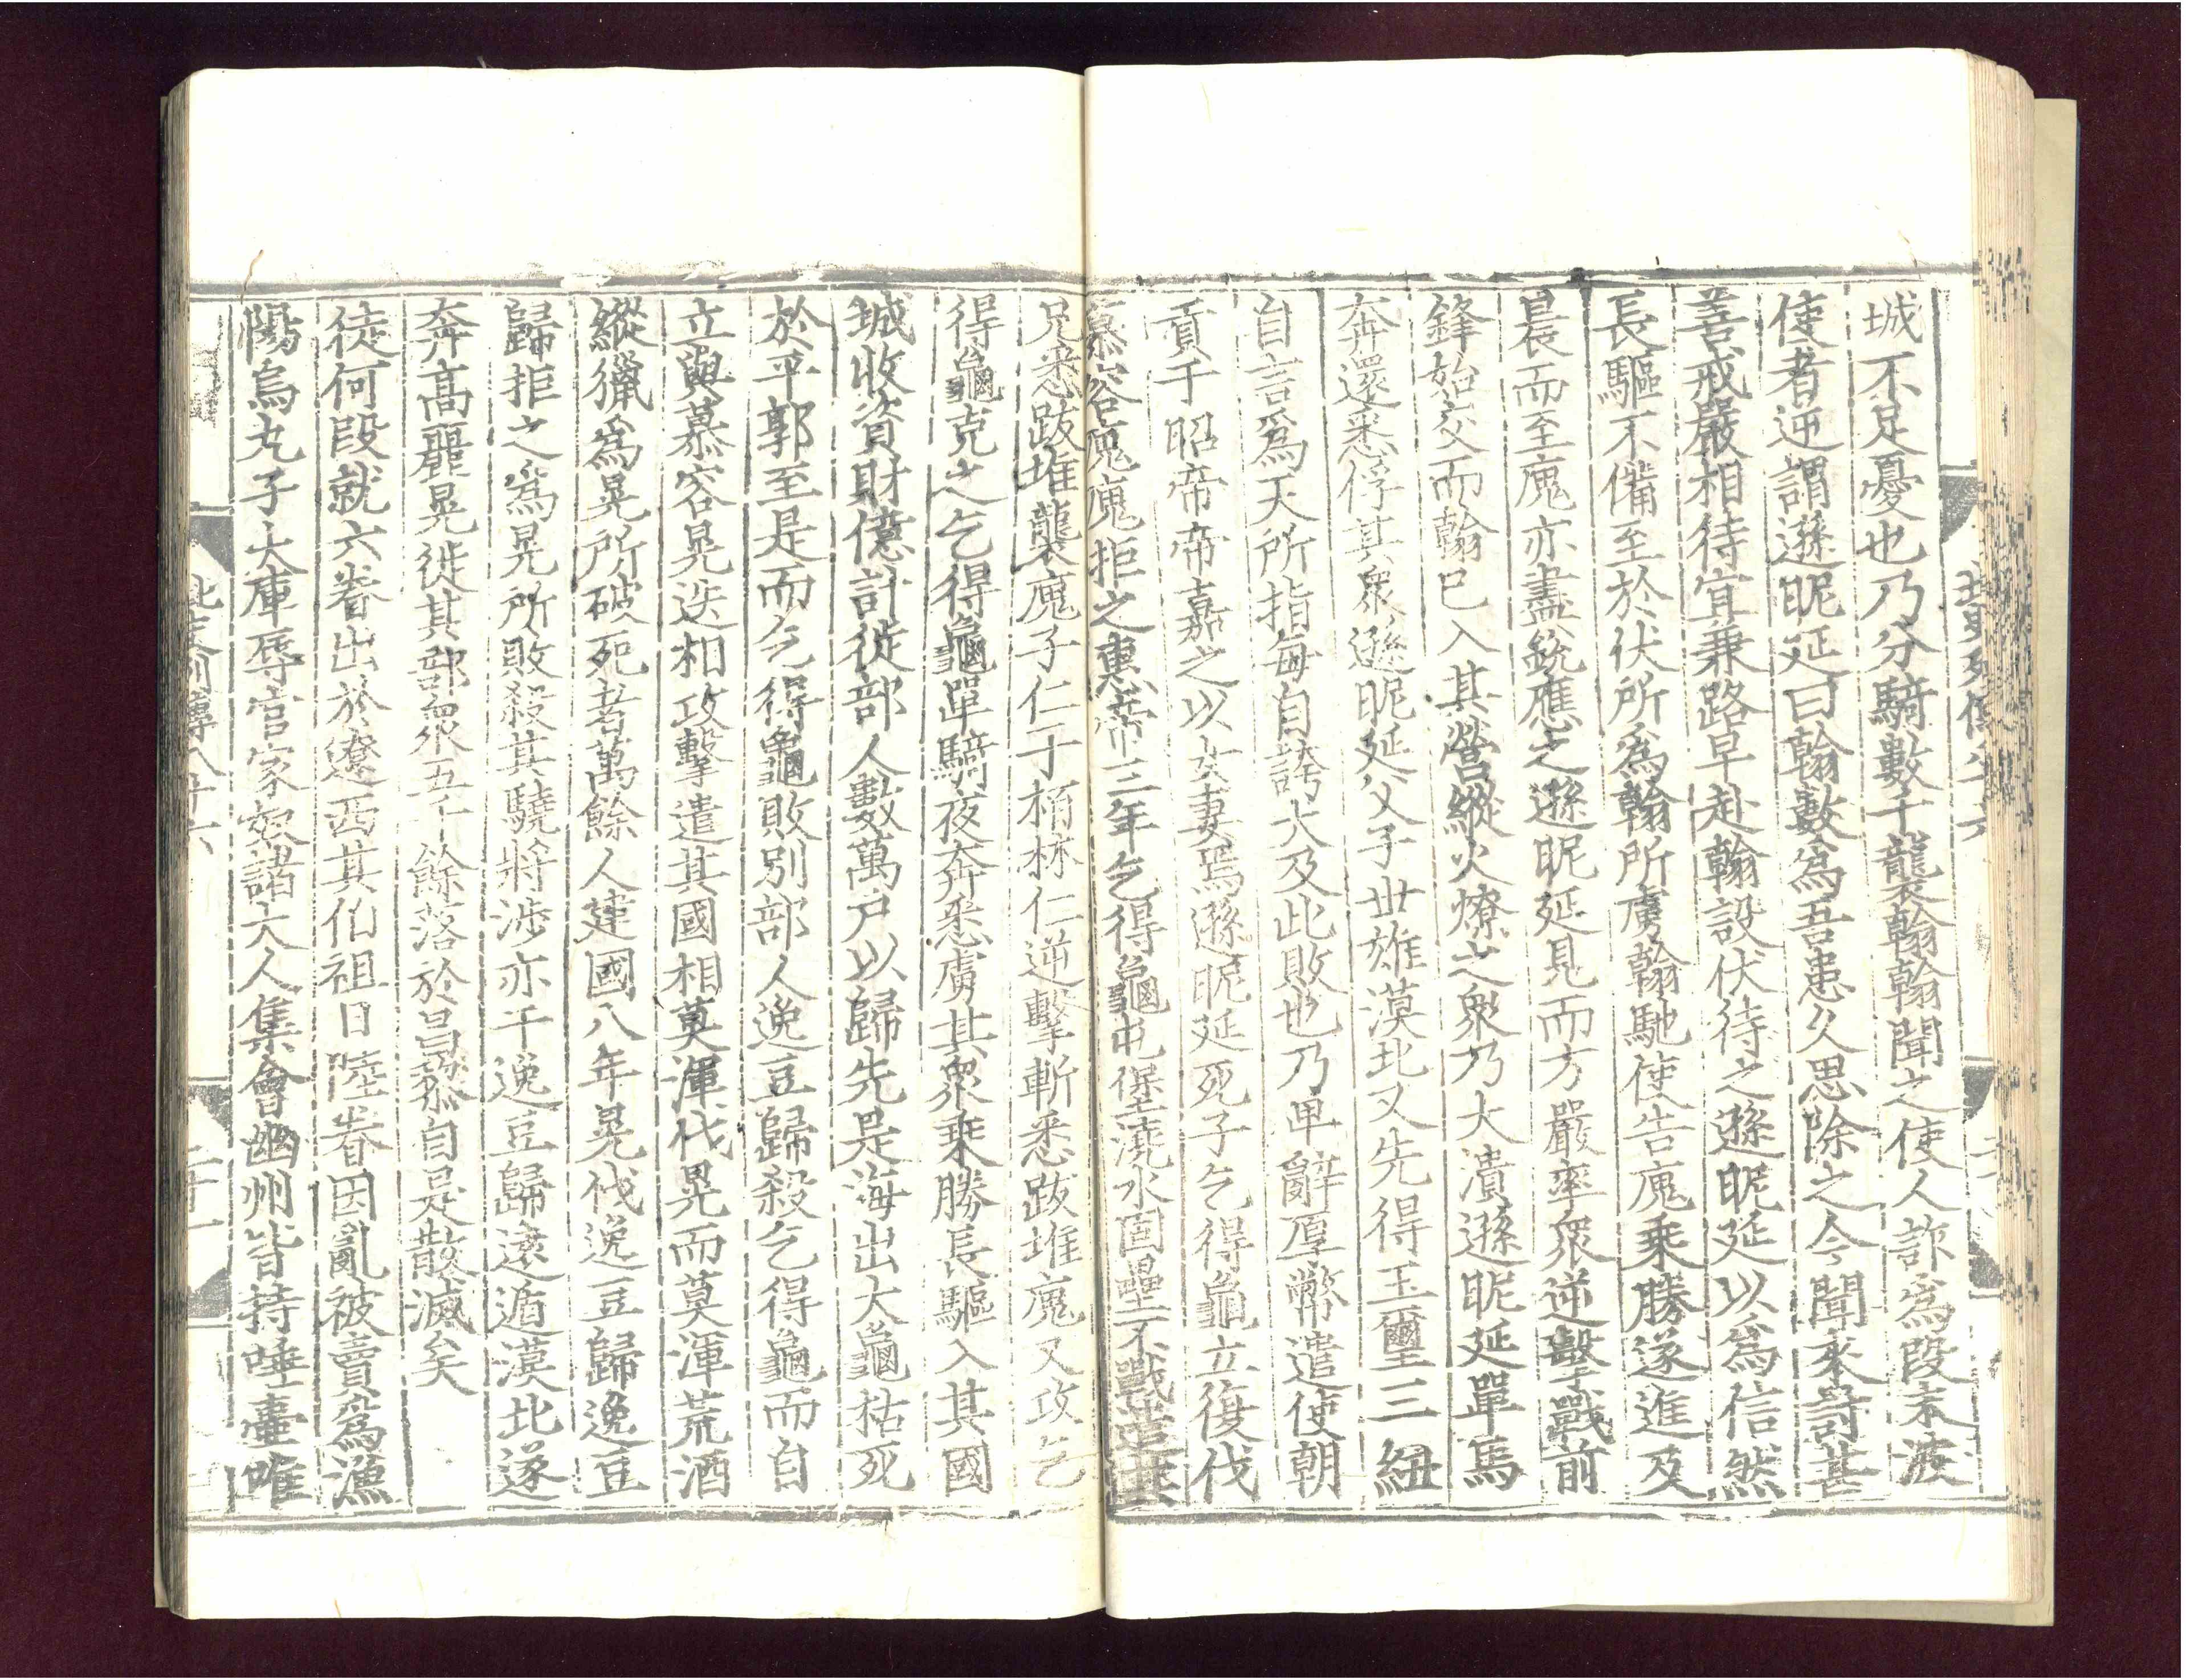 城不足憂也乃分騎數千襲翰翰聞之使人詐爲段末波
使者逆謂遜昵延曰翰數爲吾患久思除之今聞來討甚
善戒嚴相待宜兼路早赴翰設伏待之遜昵延以爲信然
長驅不備至於伏所爲翰所虜翰馳使告廆乘勝遂進及
晨而至廆亦盡銳應之遜昵延見而方嚴率衆逆擊戰前
鋒始交而翰已入其營縱火燎之衆乃大潰遜昵延單馬
奔還悉俘其衆遜昵延父子世雄漠北又先得玉璽三紐
自言爲天所指每自誇大及此敗也乃卑辭厚幣遣使朝
貢于昭帝帝嘉之以女妻焉遜昵延死子乞得龜立復伐
慕容廆廆拒之惠帝三年乞得龜屯保澆水固壘不戰遣其
兄悉跋堆襲廆子仁于栢林仁逆擊斬悉跋堆廆又攻乞
得龜克之乞得龜單騎夜奔悉虜其衆乘勝長驅入其國
城收資財億計徙部人數萬戶以歸先是海出大龜枯死
於平郭至是而乞得龜敗別部人逸豆歸殺乞得龜而自
立與慕容晃迭相攻擊遣其國相莫渾伐晃而莫渾荒酒
縱獵爲晃所破死者萬餘人建國八年晃伐逸豆歸逸豆
歸拒之爲晃所敗殺其驍將涉亦干逸豆歸遠遁漠北遂
奔高麗晃徙其部衆五千餘落於昌黎自是散滅矣
徒何段就六眷出於遼西其伯祖日陸眷因亂被賣爲漁
陽烏丸子大庫辱官家奴諸大人集會幽州皆持唾壷唯
北史列傳八十六
二十一